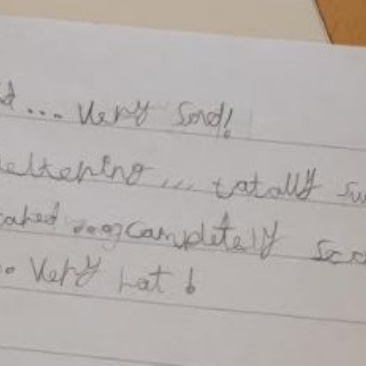 d... Very Sad!
eltering ... tatally Su
ared ... Campletely Sca
.. Very hat!